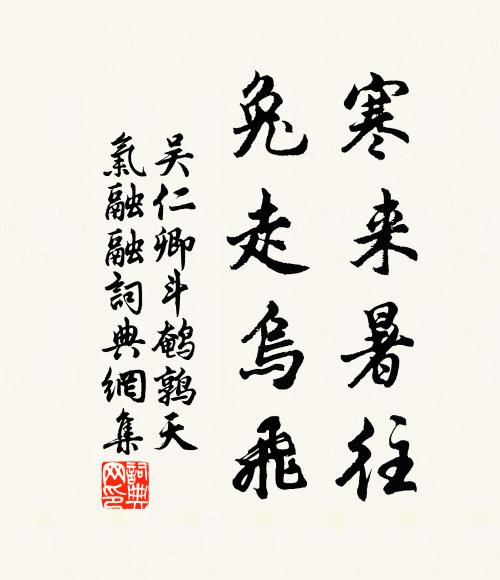 寒来暑往
兔走烏飛
吴仁卿斗鹌鹑天
氣融融詞典網集
詞典网印